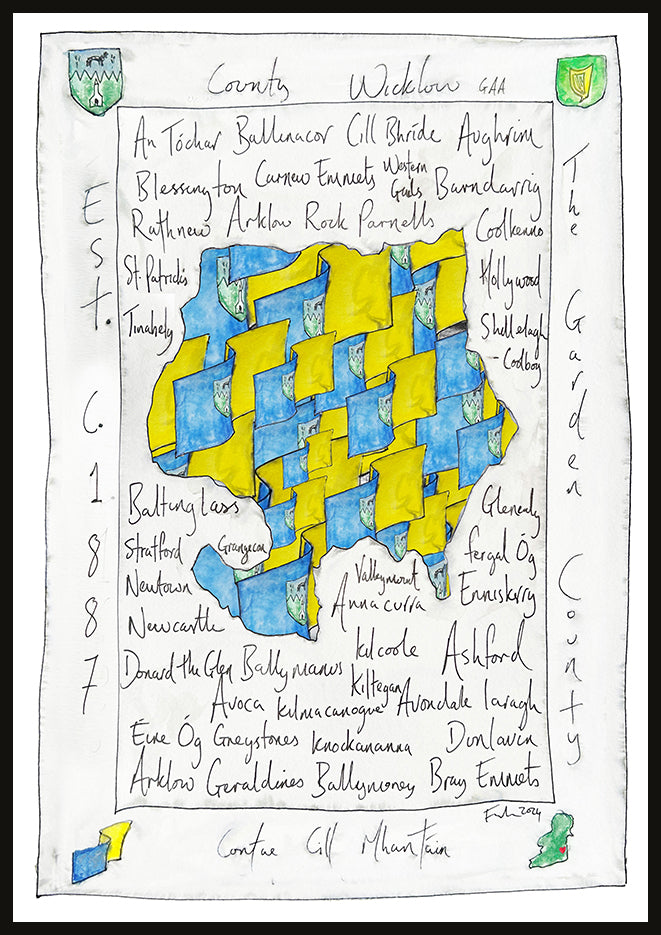 County Wicklow GAA
An Tóchar Ballinacor Cill Bhríde Aughrim
Blessington Carnew Emmets Western Gaels Barndarrig
Rathnew Arklow Rock Parnells Coolkenno
St. Patricks
Hollywood
Tinahely
Shillelagh
- Coolboy
Est. C. 1887
The Garden County
Baltinglass
Glenealy
Stratford
Grangecon
Fergal Óg
Newtown
Valleymount
Enniskerry
Newcastle
Annacurra
Donard the Glen Ballymanus Kilcoole Ashford
Avoca Kilmacanogue Kiltegan Avondale Laragh
Éire Óg Greystones Knockananna Donlavin
Arklow Geraldines Ballymoney Bray Emmets
2024
Contae Cill Mhantáin